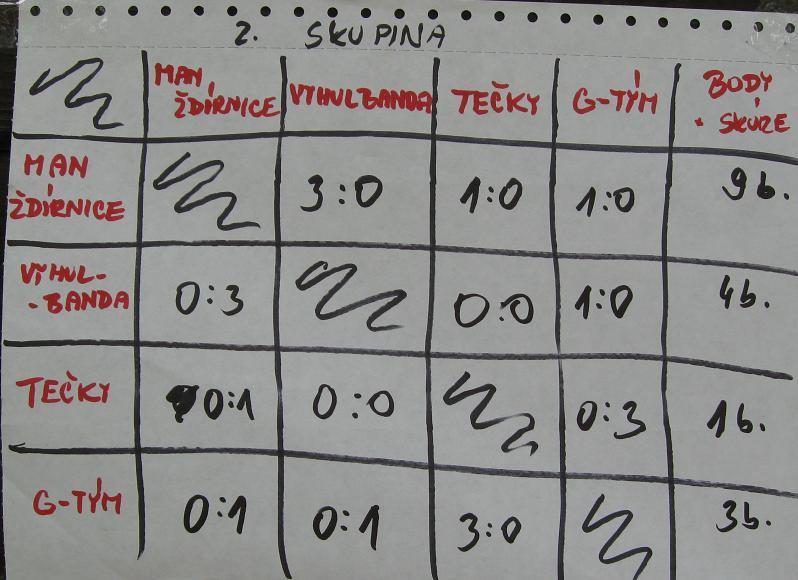 2. SKUPINA
MAN. ŽDÍRNICE VYHULBANDA TEČKY G-TÝM BODY SKÓRE
MAN. ŽDÍRNICE 3:0 1:0 1:0 9b.
VYHUL-BANDA 0:3 0:0 1:0 4b.
TEČKY 0:1 0:0 0:3 1b.
G-TÝM 0:1 0:1 3:0 3b.